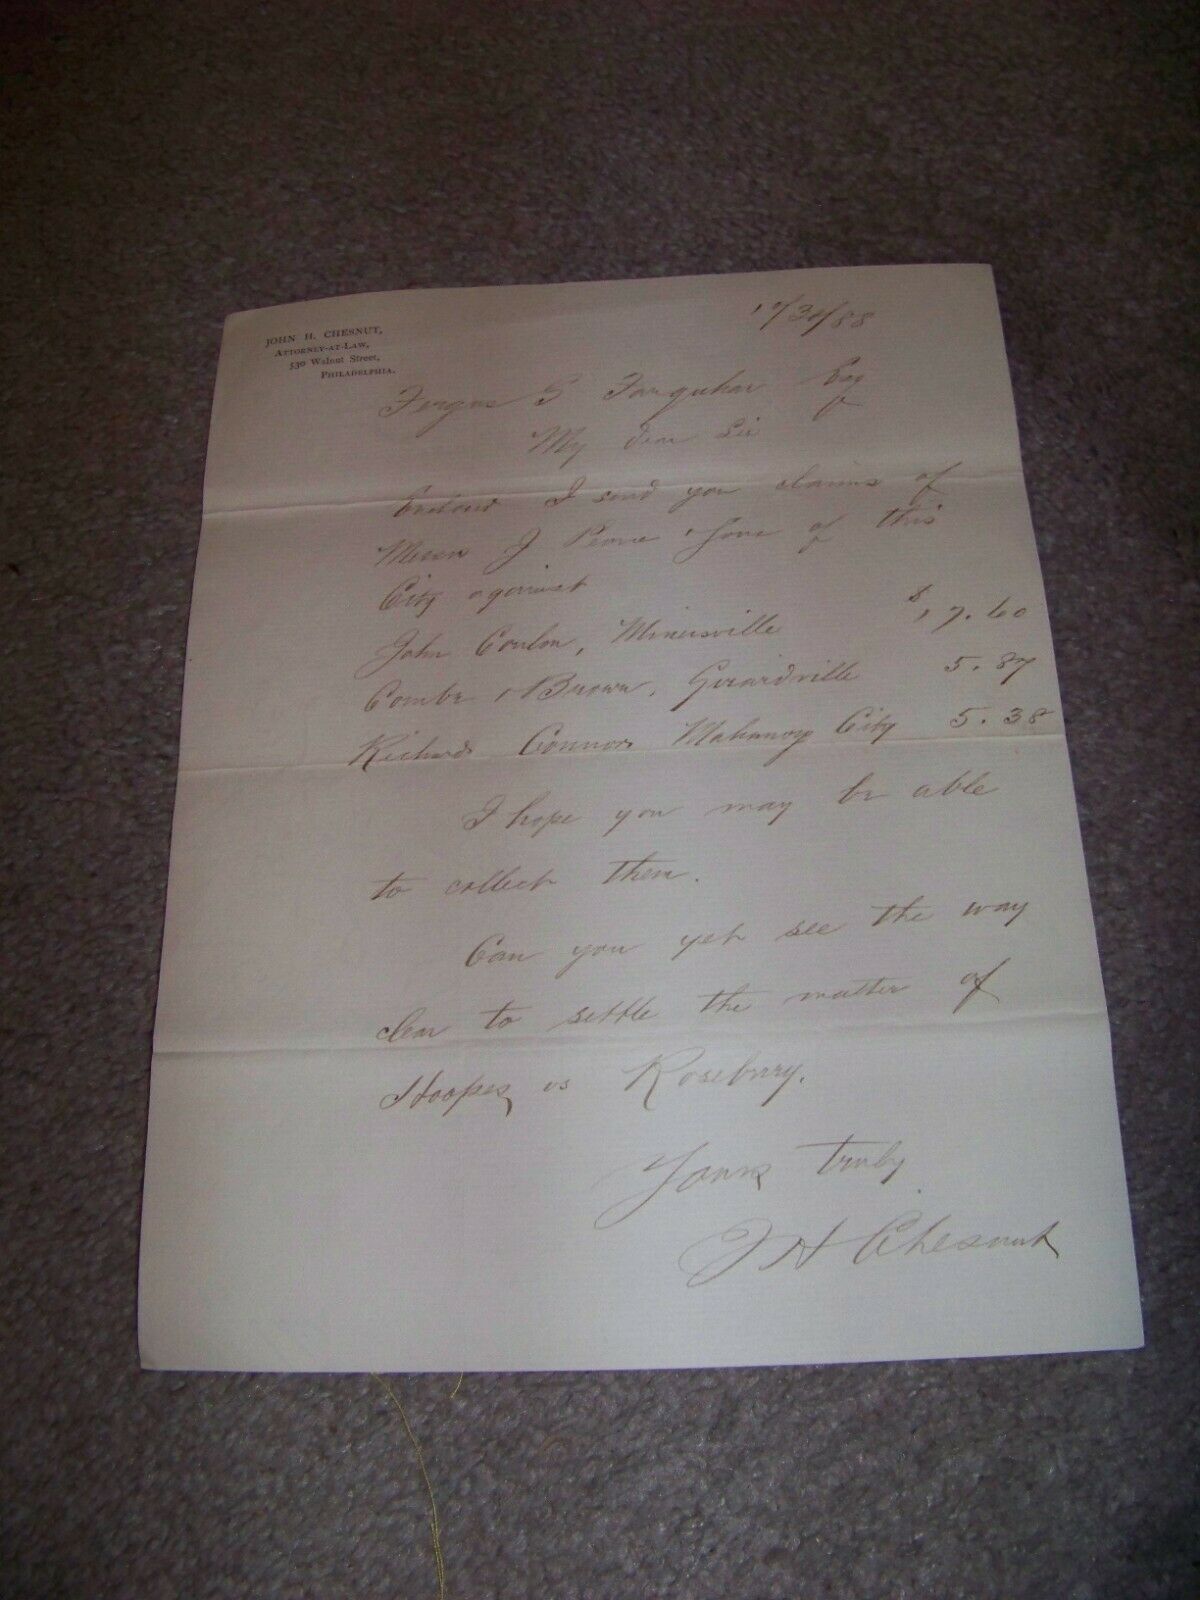 JOHN H. CHESNUT,
ATTORNEY-AT-LAW,
530 Walnut Street,
PHILADELPHIA.
/88
Fergus G Farquhar Esq
My dear Sir
Enclosed I send you claims of
Messrs J Pearce Sons of this
City against
John Conlon, Minersville $17.60
Combe & Brown, Girardville 5.87
Richard Connors Mahanoy City 5.38
I hope you may be able
to collect them.
Can you yet see the way
clear to settle the matter of
Hoopes vs Roseburry.
Yours truly
J H Chesnut